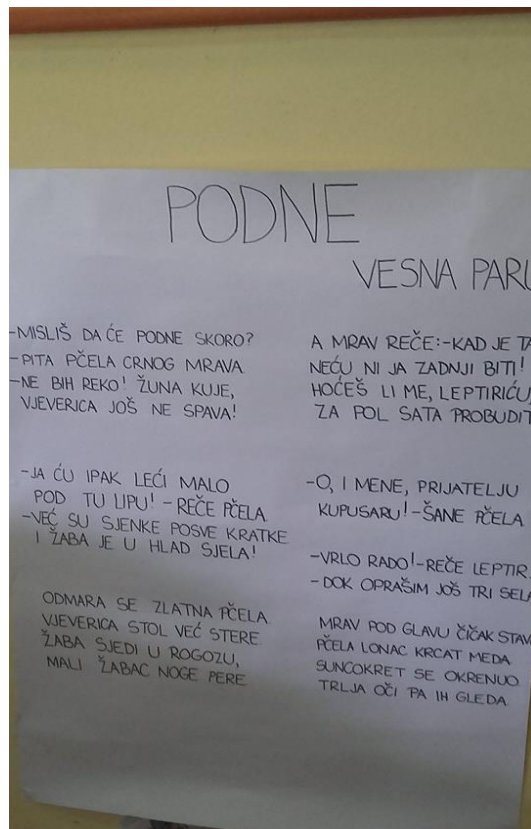 PODNE
VESNA PARU
-MISLIŠ DA ĆE PODNE SKORO?
-PITA PČELA CRNOG MRAVA
-NE BIH REKO! ŽUNA KUJE,
VJEVERICA JOŠ NE SPAVA!
-JA ĆU IPAK LEĆI MALO
POD TU LIPU! - REČE PČELA
-VEĆ SU SJENKE POSVE KRATKE
I ŽABA JE U HLAD SJELA!
ODMARA SE ZLATNA PČELA
VJEVERICA STOL VEĆ STERE
ŽABA SJEDI U ROGOZU,
MALI ŽABAC NOGE PERE
A MRAV REČE:-KAD JE TA
NEĆU NI JA ZADNJI BITI!
HOĆEŠ LI ME, LEPTIRIĆU,
ZA POL SATA PROBUDIT
-O, I MENE, PRIJATELJU
KUPUSARU!-ŠANE PČELA
-VRLO RADO!-REČE LEPTIR.
- DOK OPRAŠIM JOŠ TRI SELA
MRAV POD GLAVU ČIČAK STAV
PČELA LONAC KRCAT MEDA
SUNCOKRET SE OKRENUO
TRLJA OČI PA IH GLEDA